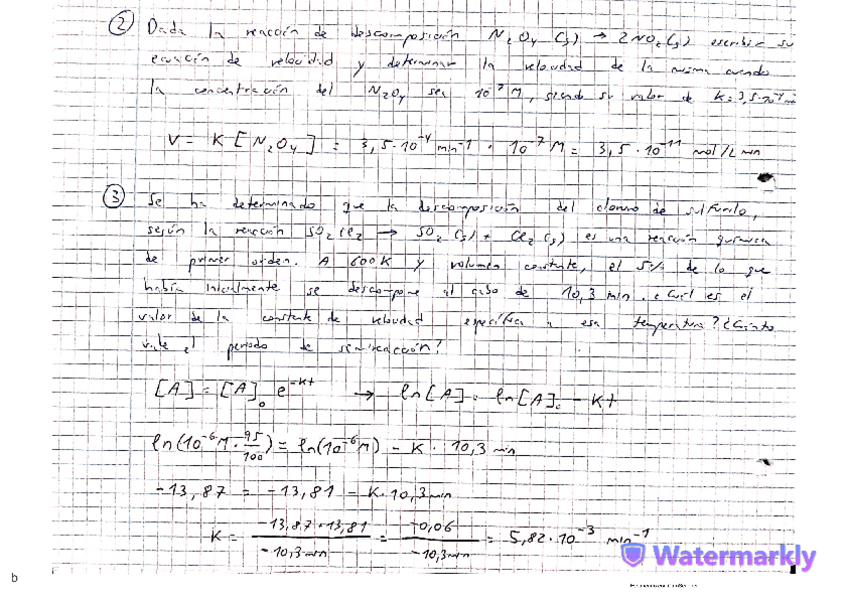 ② Dada la reacción de descomposición N₂O₄ (g) → 2NO₂(g) escribir su
ecuación de velocidad y determinar la velocidad de la misma cuando
la concentración del N₂O₄ sea 10⁻⁷ M, siendo su valor de K = 3,5·10⁻⁴ min
V = K [N₂O₄] = 3,5·10⁻⁴ min⁻¹ · 10⁻⁷ M = 3,5·10⁻¹¹ mol/L min
③ Se ha determinado que la descomposición del cloruro de sulfurilo,
según la reacción SO₂Cl₂ → SO₂ (g) + Cl₂ (g) es una reacción química
de primer orden. A 600K y volumen constante, el 5% de lo que
había inicialmente se descompone al cabo de 10,3 min. ¿Cuál es el
valor de la constante de velocidad específica a esa temperatura? ¿Cuánto
vale el periodo de semireacción?
[A] = [A]₀ e⁻ᴷᵗ → ln[A] = ln[A]₀ - Kt
ln(10⁻⁶M · 95/100) = ln(10⁻⁶M) - K · 10,3 min
-13,87 = -13,81 - K·10,3min
K = -13,87+13,81 / -10,3min = -0,06 / -10,3min = 5,82·10⁻³ min⁻¹
Watermarkly
b